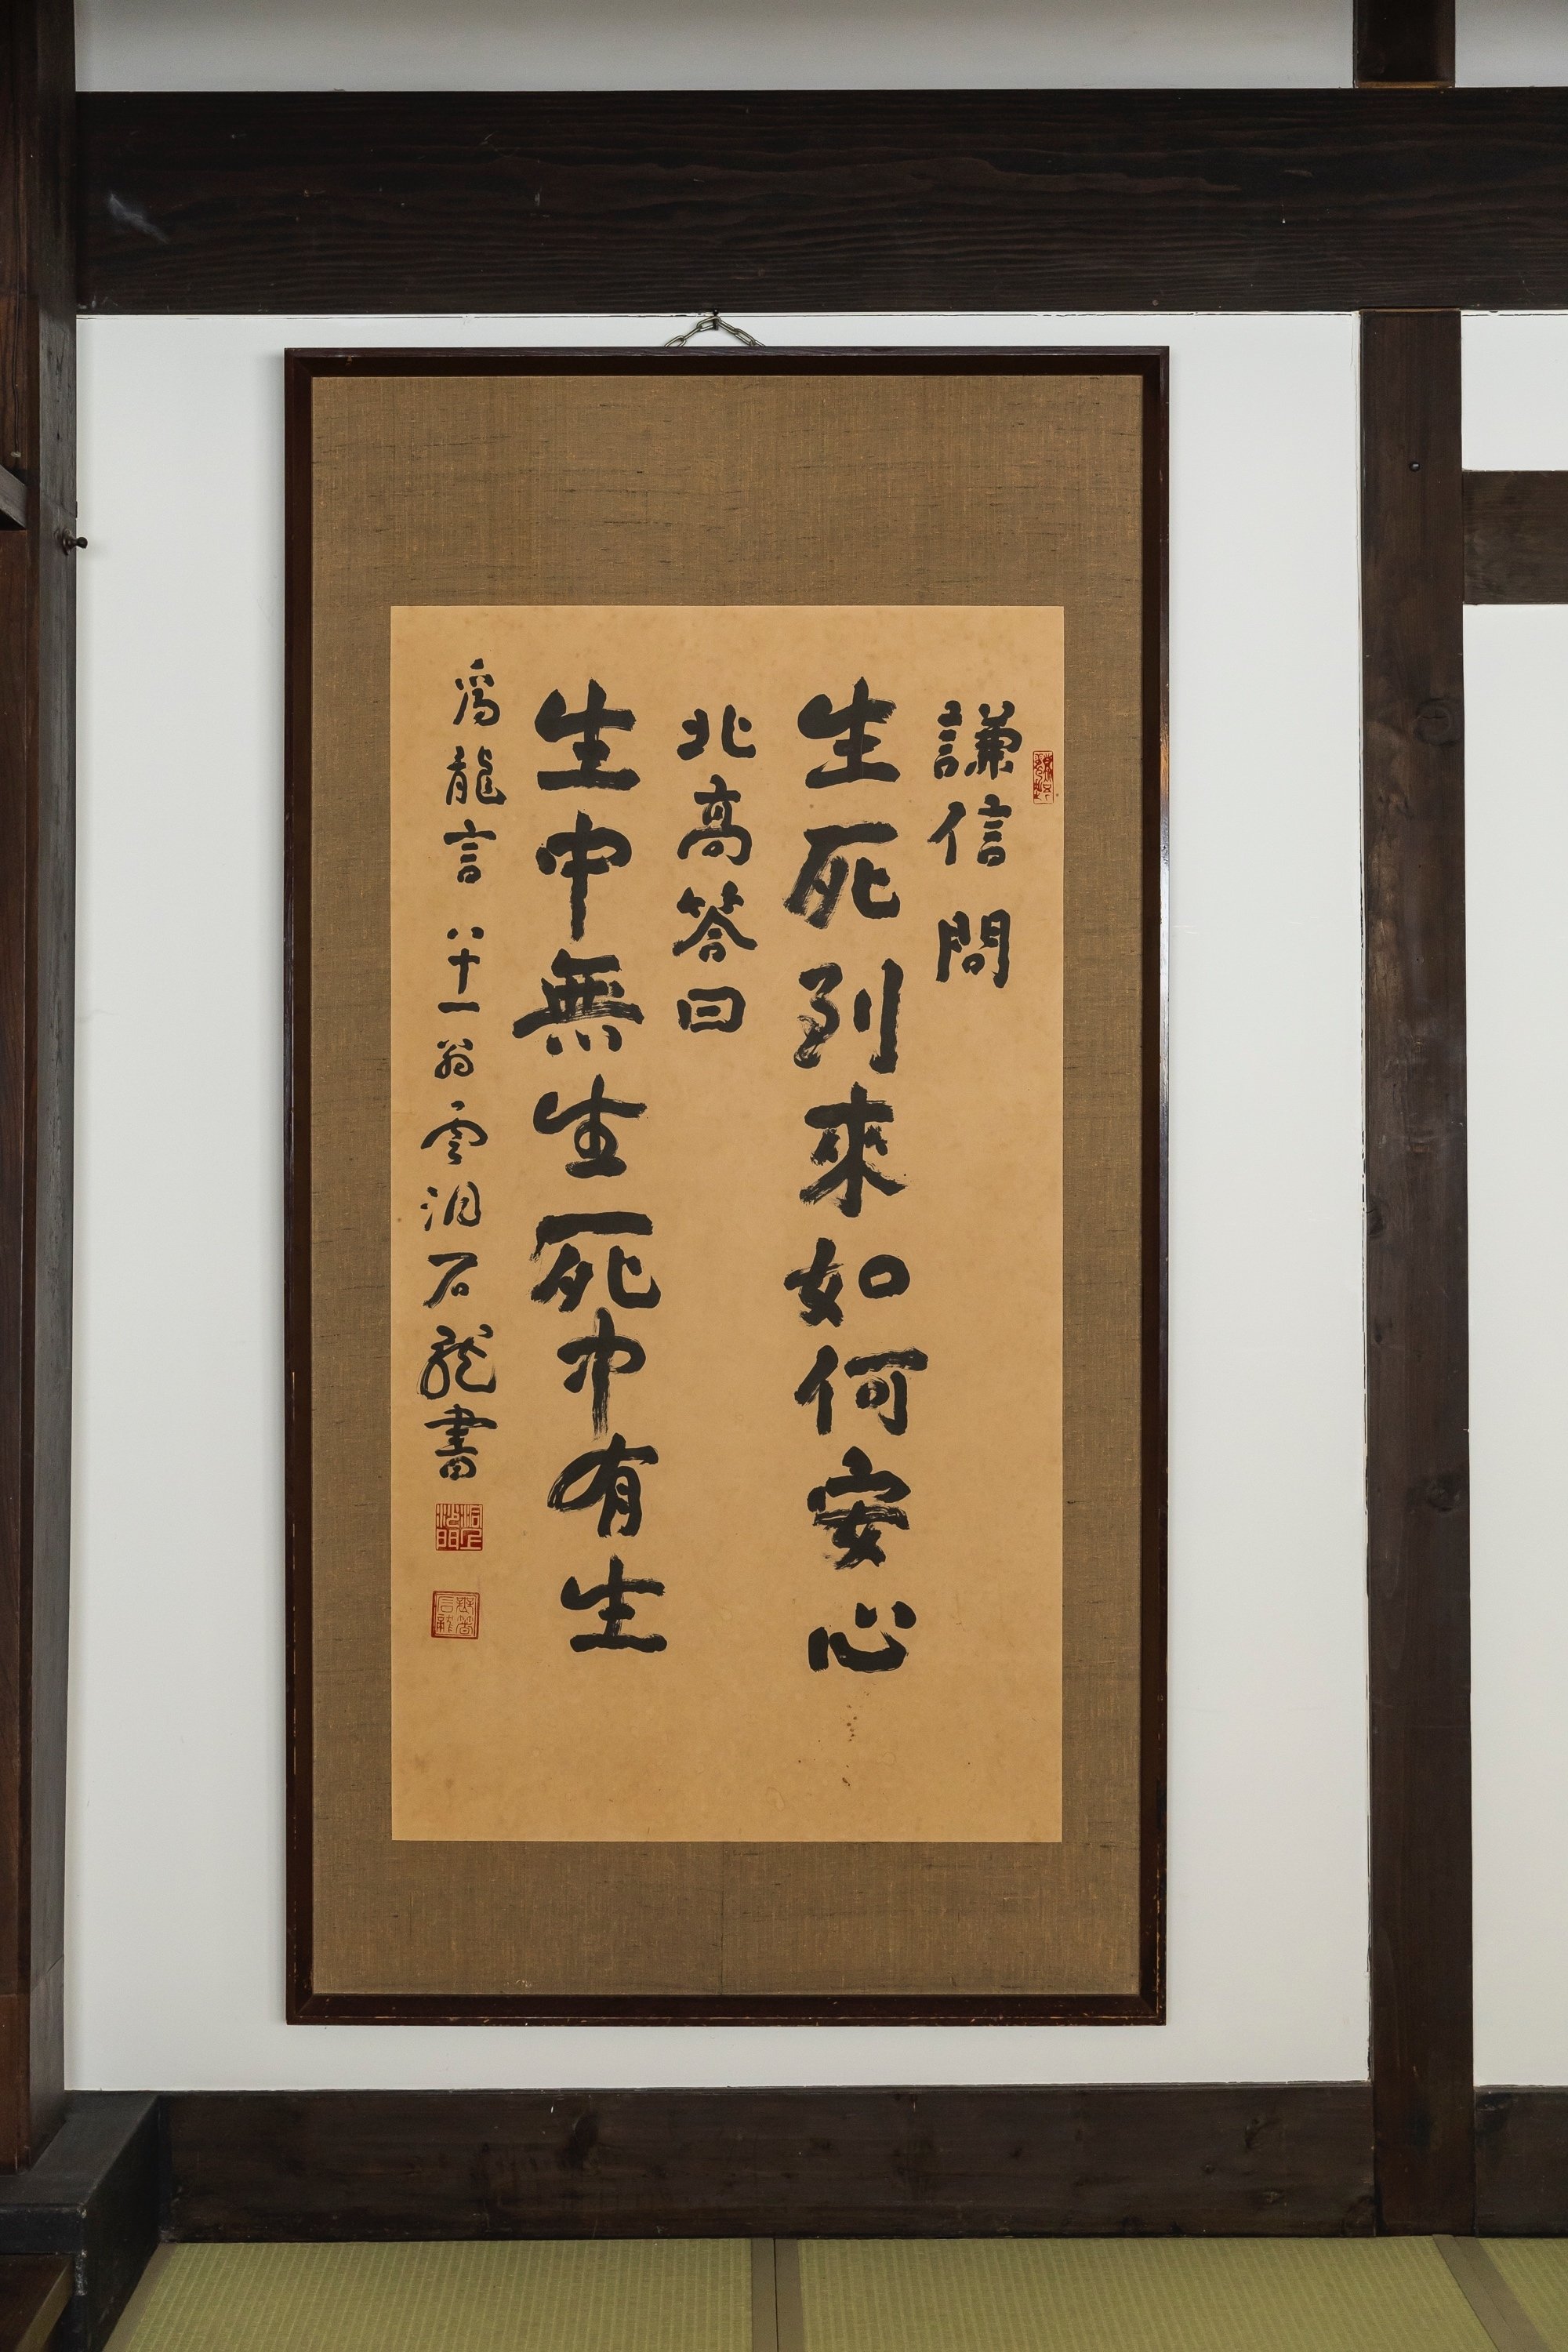 謙信問
生死到來如何安心
北高答曰
生中無生死中有生
為龍言 八十一翁 雲洞石龍書